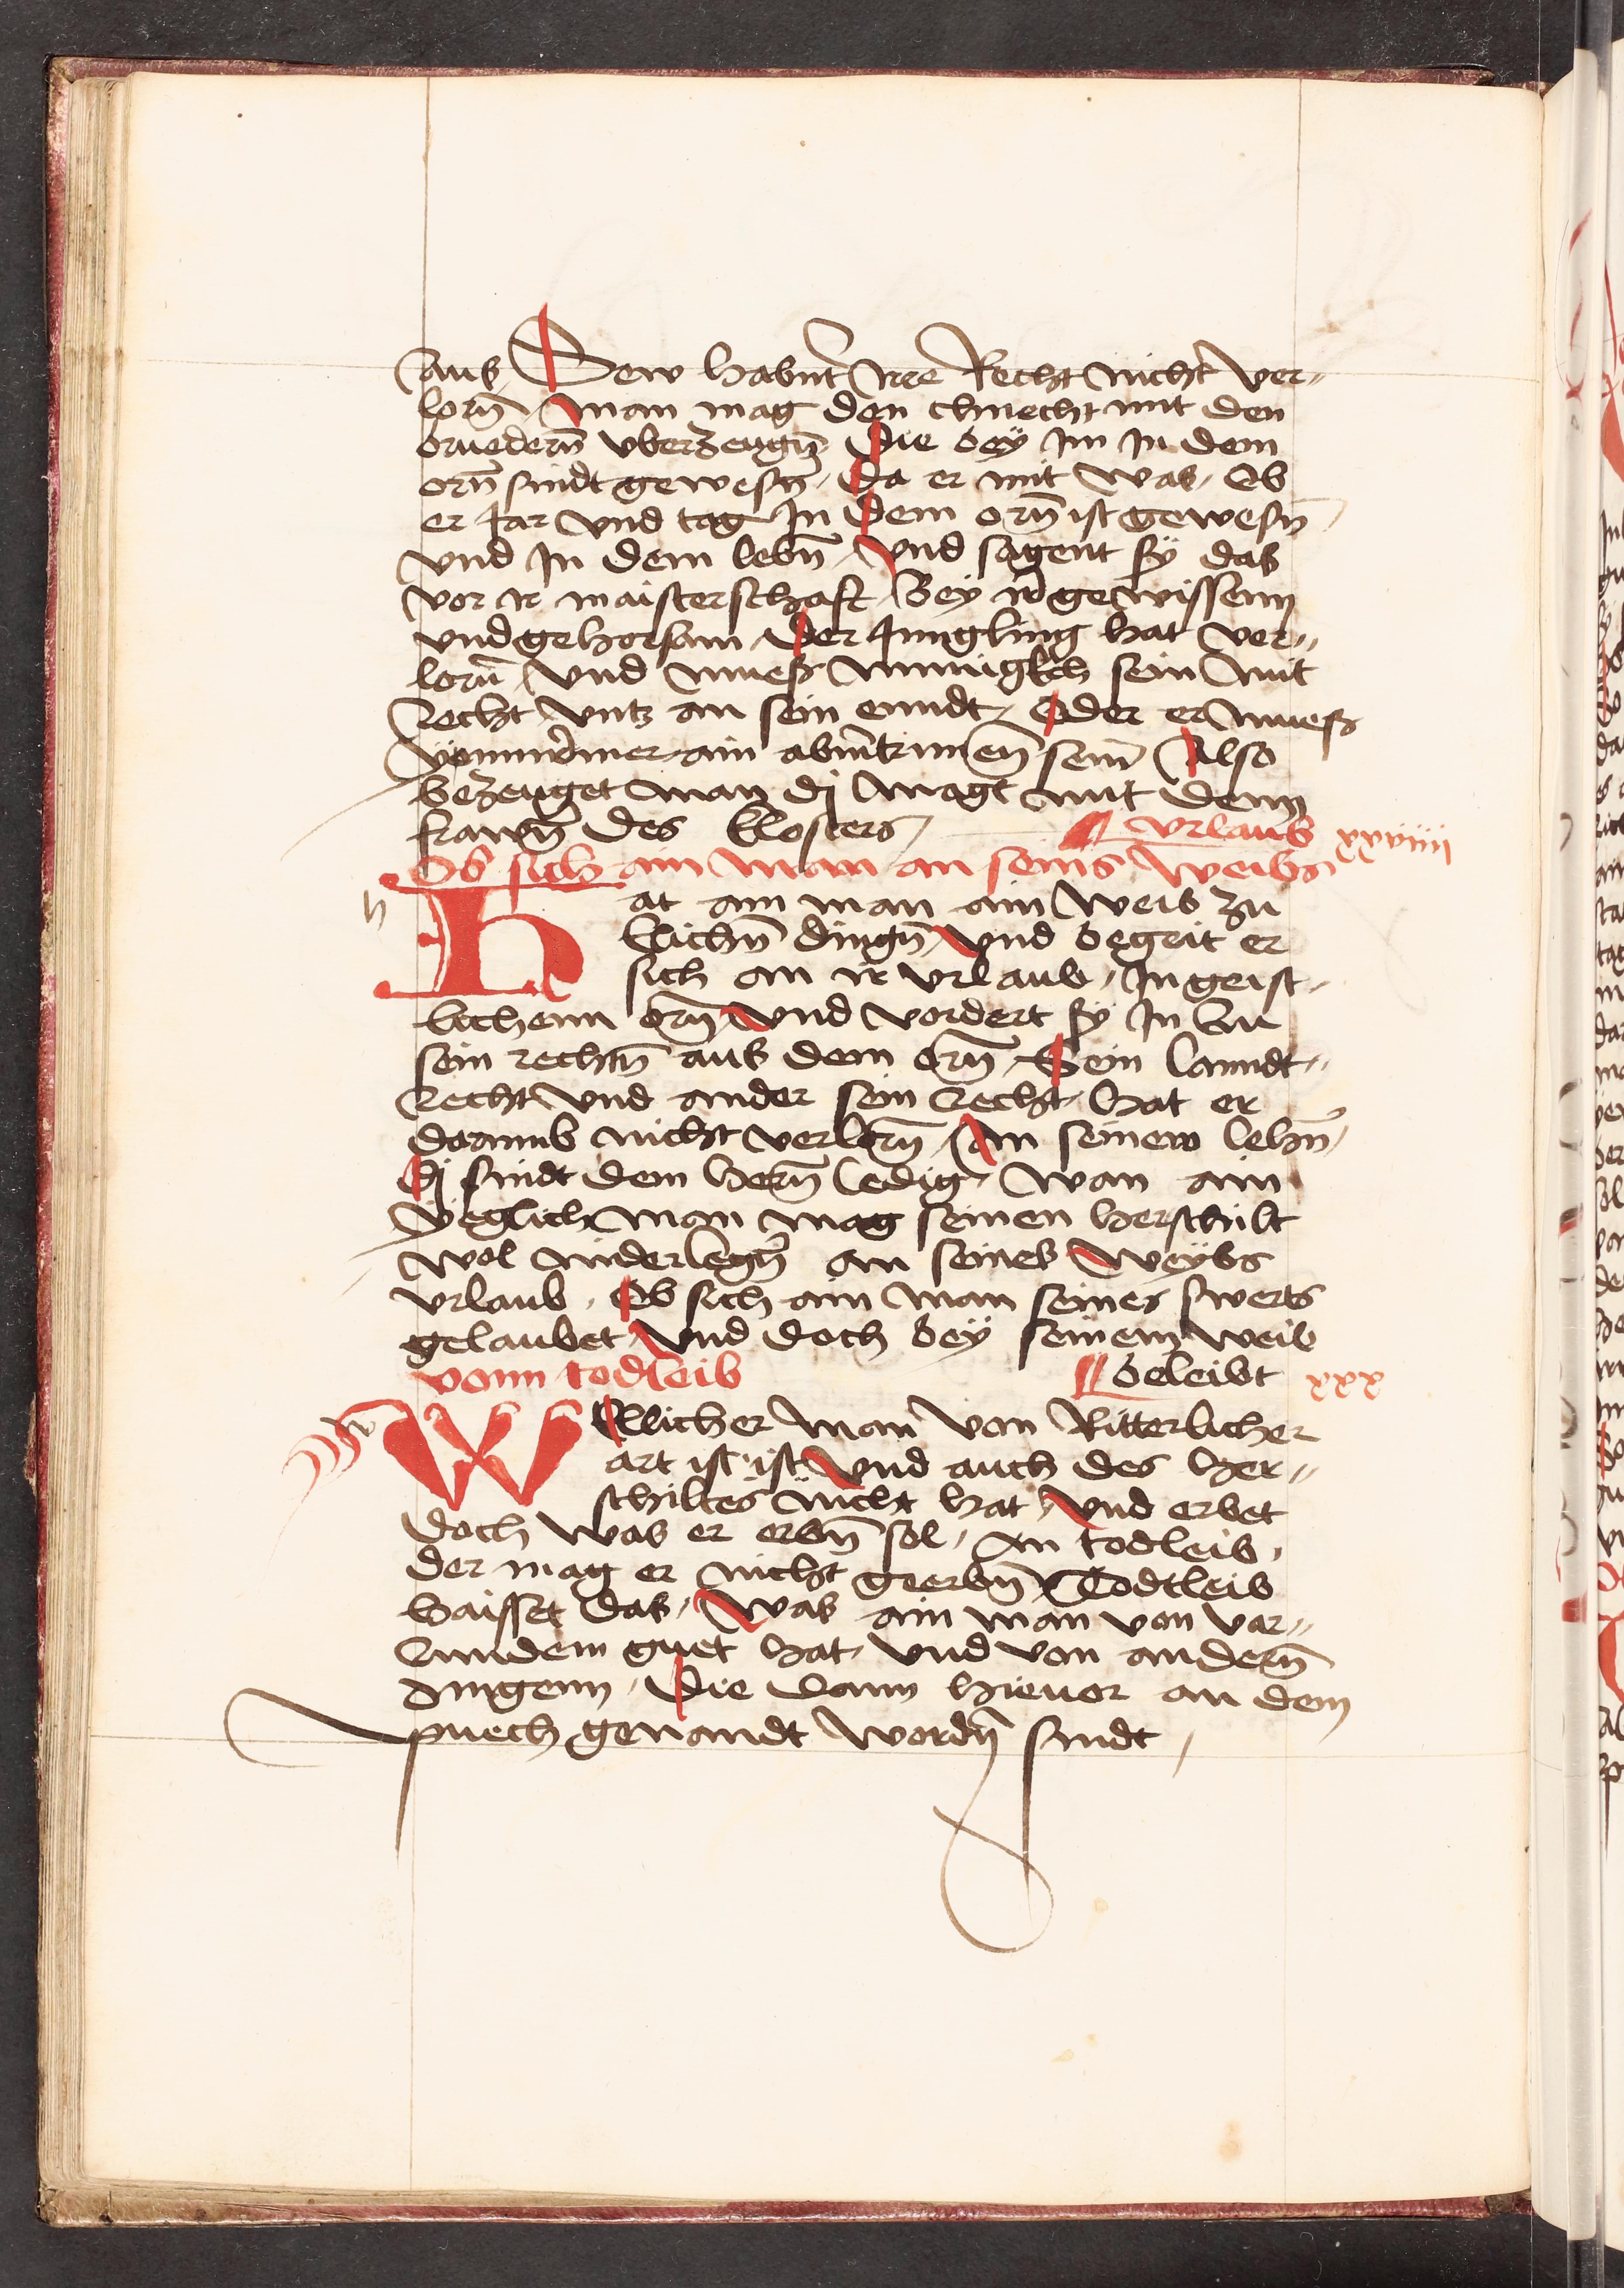 aus Dew habnt jree Recht nicht ver-
lorn̄ man mag den chnecht mit den
bruedern̄ vberzeugn̄ die bey im in dem
orn̄ sindt gewesn̄ da er mit was Ob
er Jar vnd tag In dem orn̄ ist gewesn̄
vnd In dem lebn̄ vnd sagent sy das
vor ir maisterschaft bey ir gewissenn
vnd gehorsam der Jungling hat ver-
lorn̄ vnd muess munigkch sein mit
Recht vntz an sein enndt Oder er muess
ymmermer ain abmtrinen̄ sein Also
bezeuget man dj magt mit denn
frawn̄ des klosters
Ob sich ain man an seins weibs
vrlaub xxviiii
h
Hat ain man ain weib zu
elichn̄ dingn̄ vnd begeit er
sich an ir vrlaub In geist-
lichenn orn̄ vnd vordert sy In zu
sein rechtn̄ aus dem orn̄ Sein lanndt-
Recht vnd ander sein Recht hat er
darumb nicht verlorn̄ An seinew lehn̄
dj sindt dem hern̄ ledig wan ain
yeglich man mag seinen herschilt
wol niderlegn̄ an seines weybs
vrlaub Ob sich ain man seines swerts
gelaubet vnd doch bey seinem weib
beleibt
vonn todleib xxx
w
Wellicher man von Ritterlicher
art ist ist vnd auch des her-
schiltes nicht hat vnd erbet
doch was er erbn̄ sol An todleib
der mag er nicht geerbn̄ Todtleib
haisset das was ain man von var-
lundem guet hat vnd von andern̄
dingenn Die dann hieuor an dem
puech genandt wordn̄ sindt